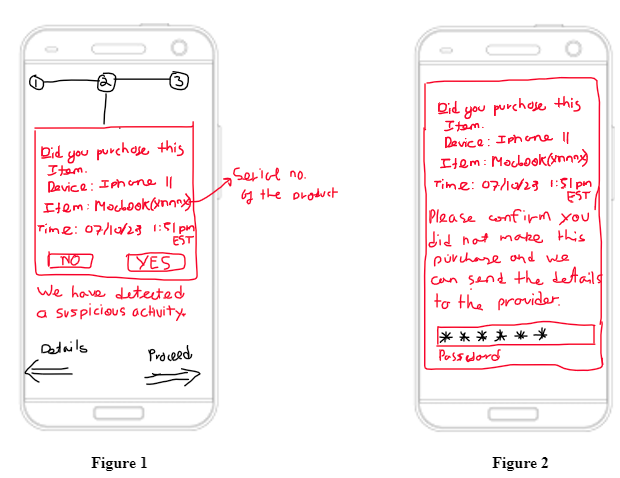 1 2 3
Did you purchase this
Item.
Device: Iphone 11
Item: Macbook(xnnnx)
Time: 07/10/23 1:51pm
EST
NO YES
We have detected
a suspicious activity.
Details Proceed
Serial no.
of the product
Figure 1
Did you purchase this
Item.
Device: Iphone 11
Item: Macbook(xnnnx)
Time: 07/10/23 1:51pm
EST
Please confirm you
did not make this
purchase and we
can send the details
to the provider.
******
Password
Figure 2